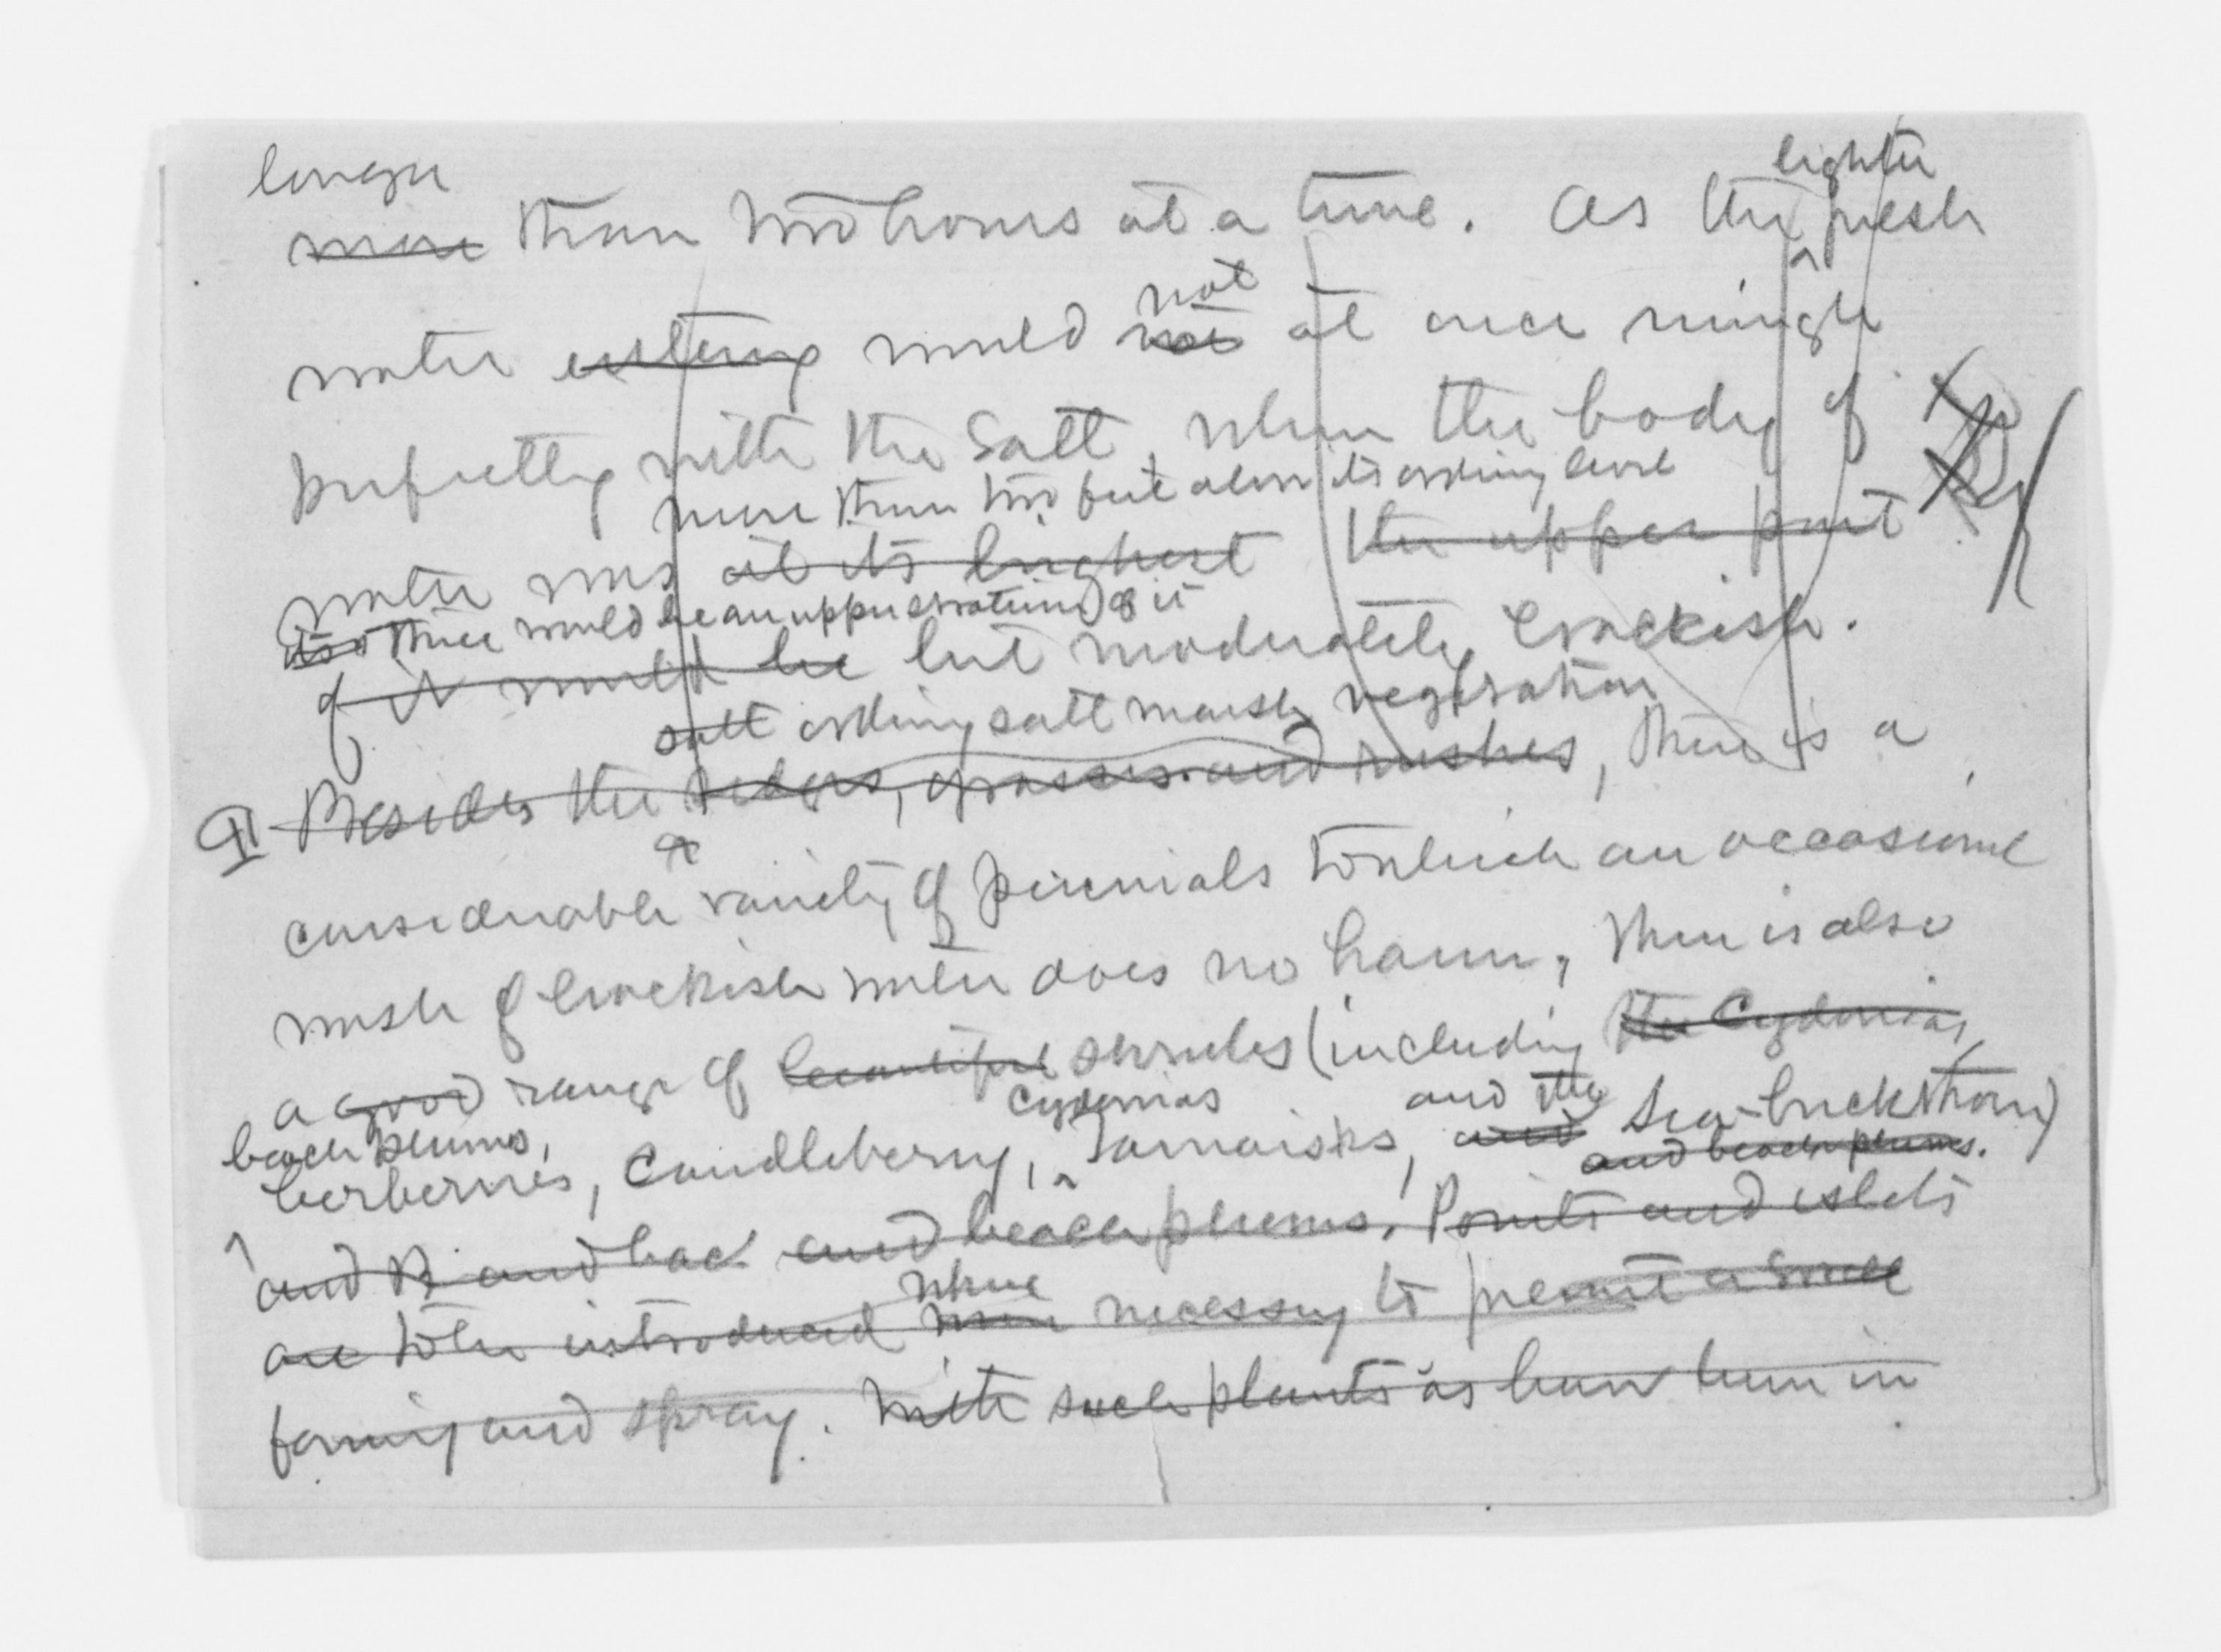 longer lighter
more than two hours at a time. As the fresh
not
water entering would not at once mingle
perfectly with the salt, when the body of
more than two feet above its ordinary level
water was at its highest the upper part
its there would be an upper stratum of it
of it would be but moderately brackish.
salt ordinary salt marsh vegetation
Besides the sedges, grasses and rushes, there is a
considerable variety of perennials to which an occasional
wash of brackish water does no harm, there is also
a good range of beautiful shrubs (including the Cydonias,
beach plums, Cydonias and the
berberries, Candleberry, Tamarisks, and Sea-buckthorn)
and beach plums.
and B and bac and beach plums. Points and islets
where
are to be introduced when necessary to prevent a
forming and spray. with such plants as have been in